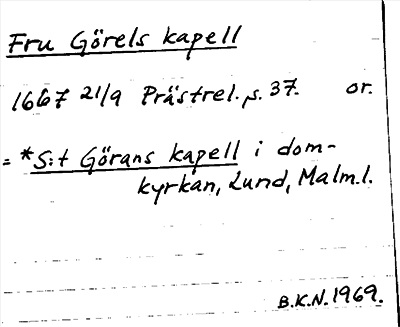 Fru Görels kapell
1667 21/9 Prästrel. s. 37. or.
= *S:t Görans kapell i dom-
kyrkan, Lund, Malm.l.
B.K.N. 1969.